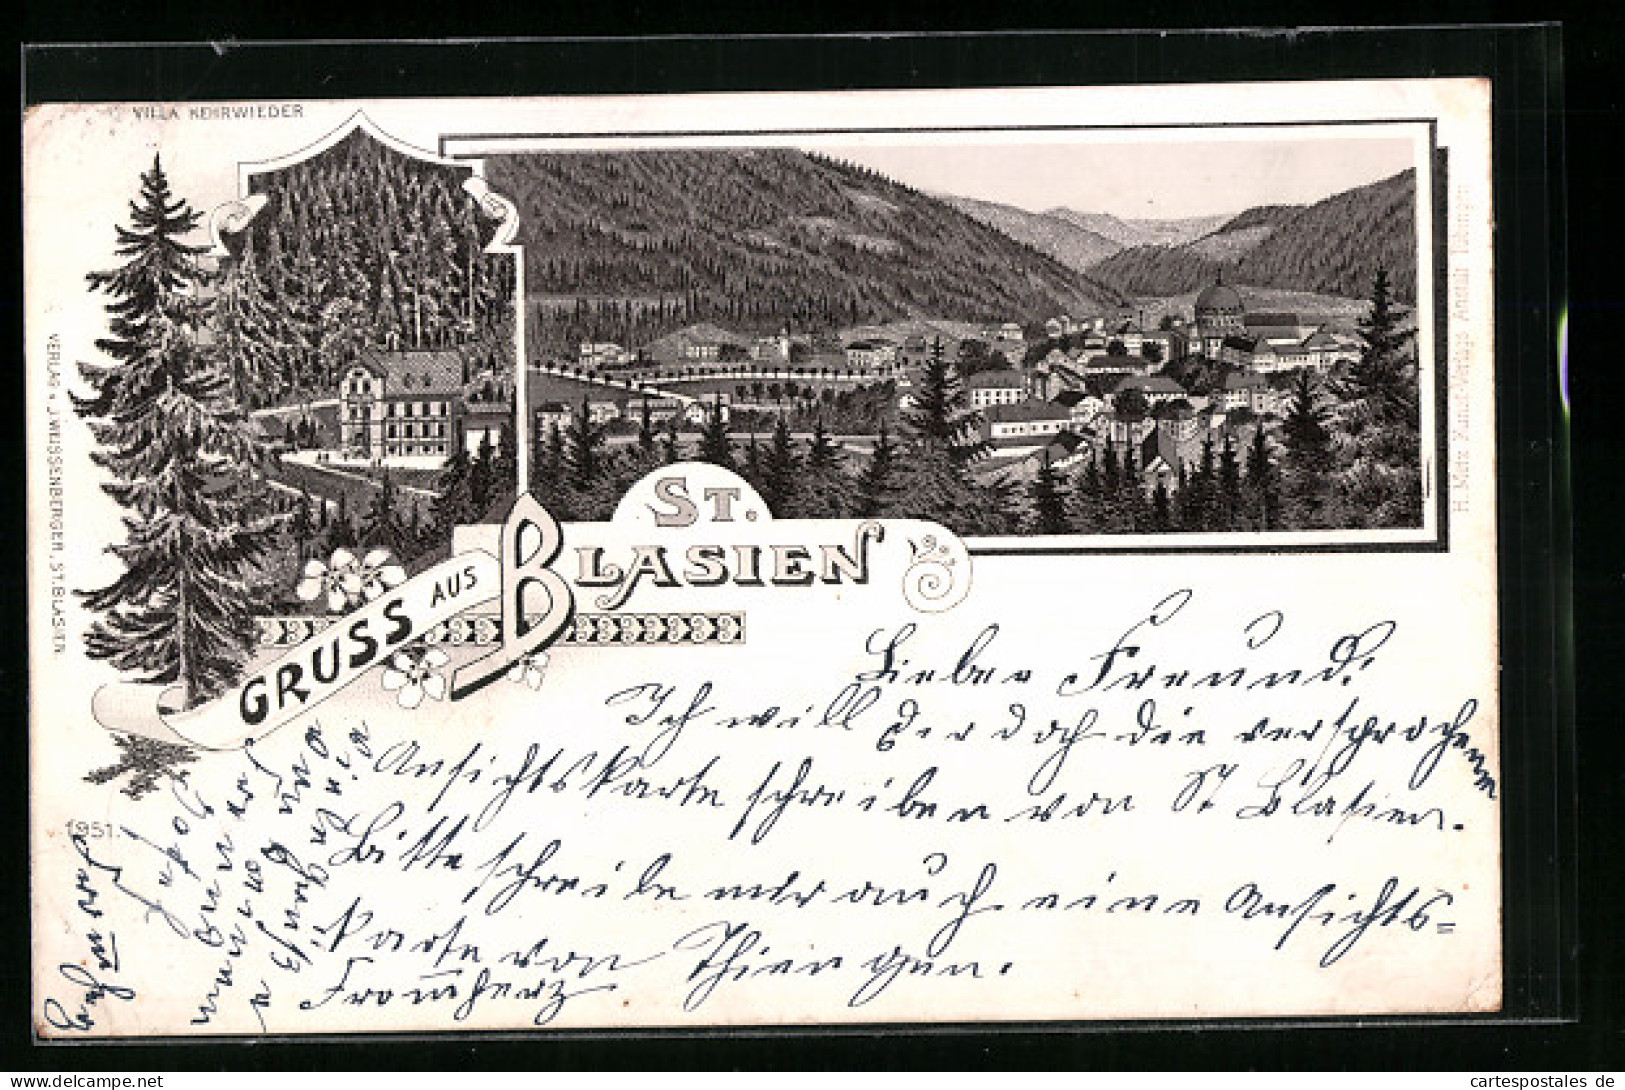 VILLA KEHRWIEDER
VERLAG v. J. WEISSENBERGER, ST. BLASIEN.
H. Metz Kunst-Verlags Anstalt Tübingen
GRUSS AUS
ST.
BLASIEN
1951.
Lieber Freund!
Ich will Dir doch die versprochene
Ansichtskarte schreiben von St Blasien.
Bitte schreibe mir auch eine Ansichts=
Karte von Thiengen.
From̄herz
cartespostales de